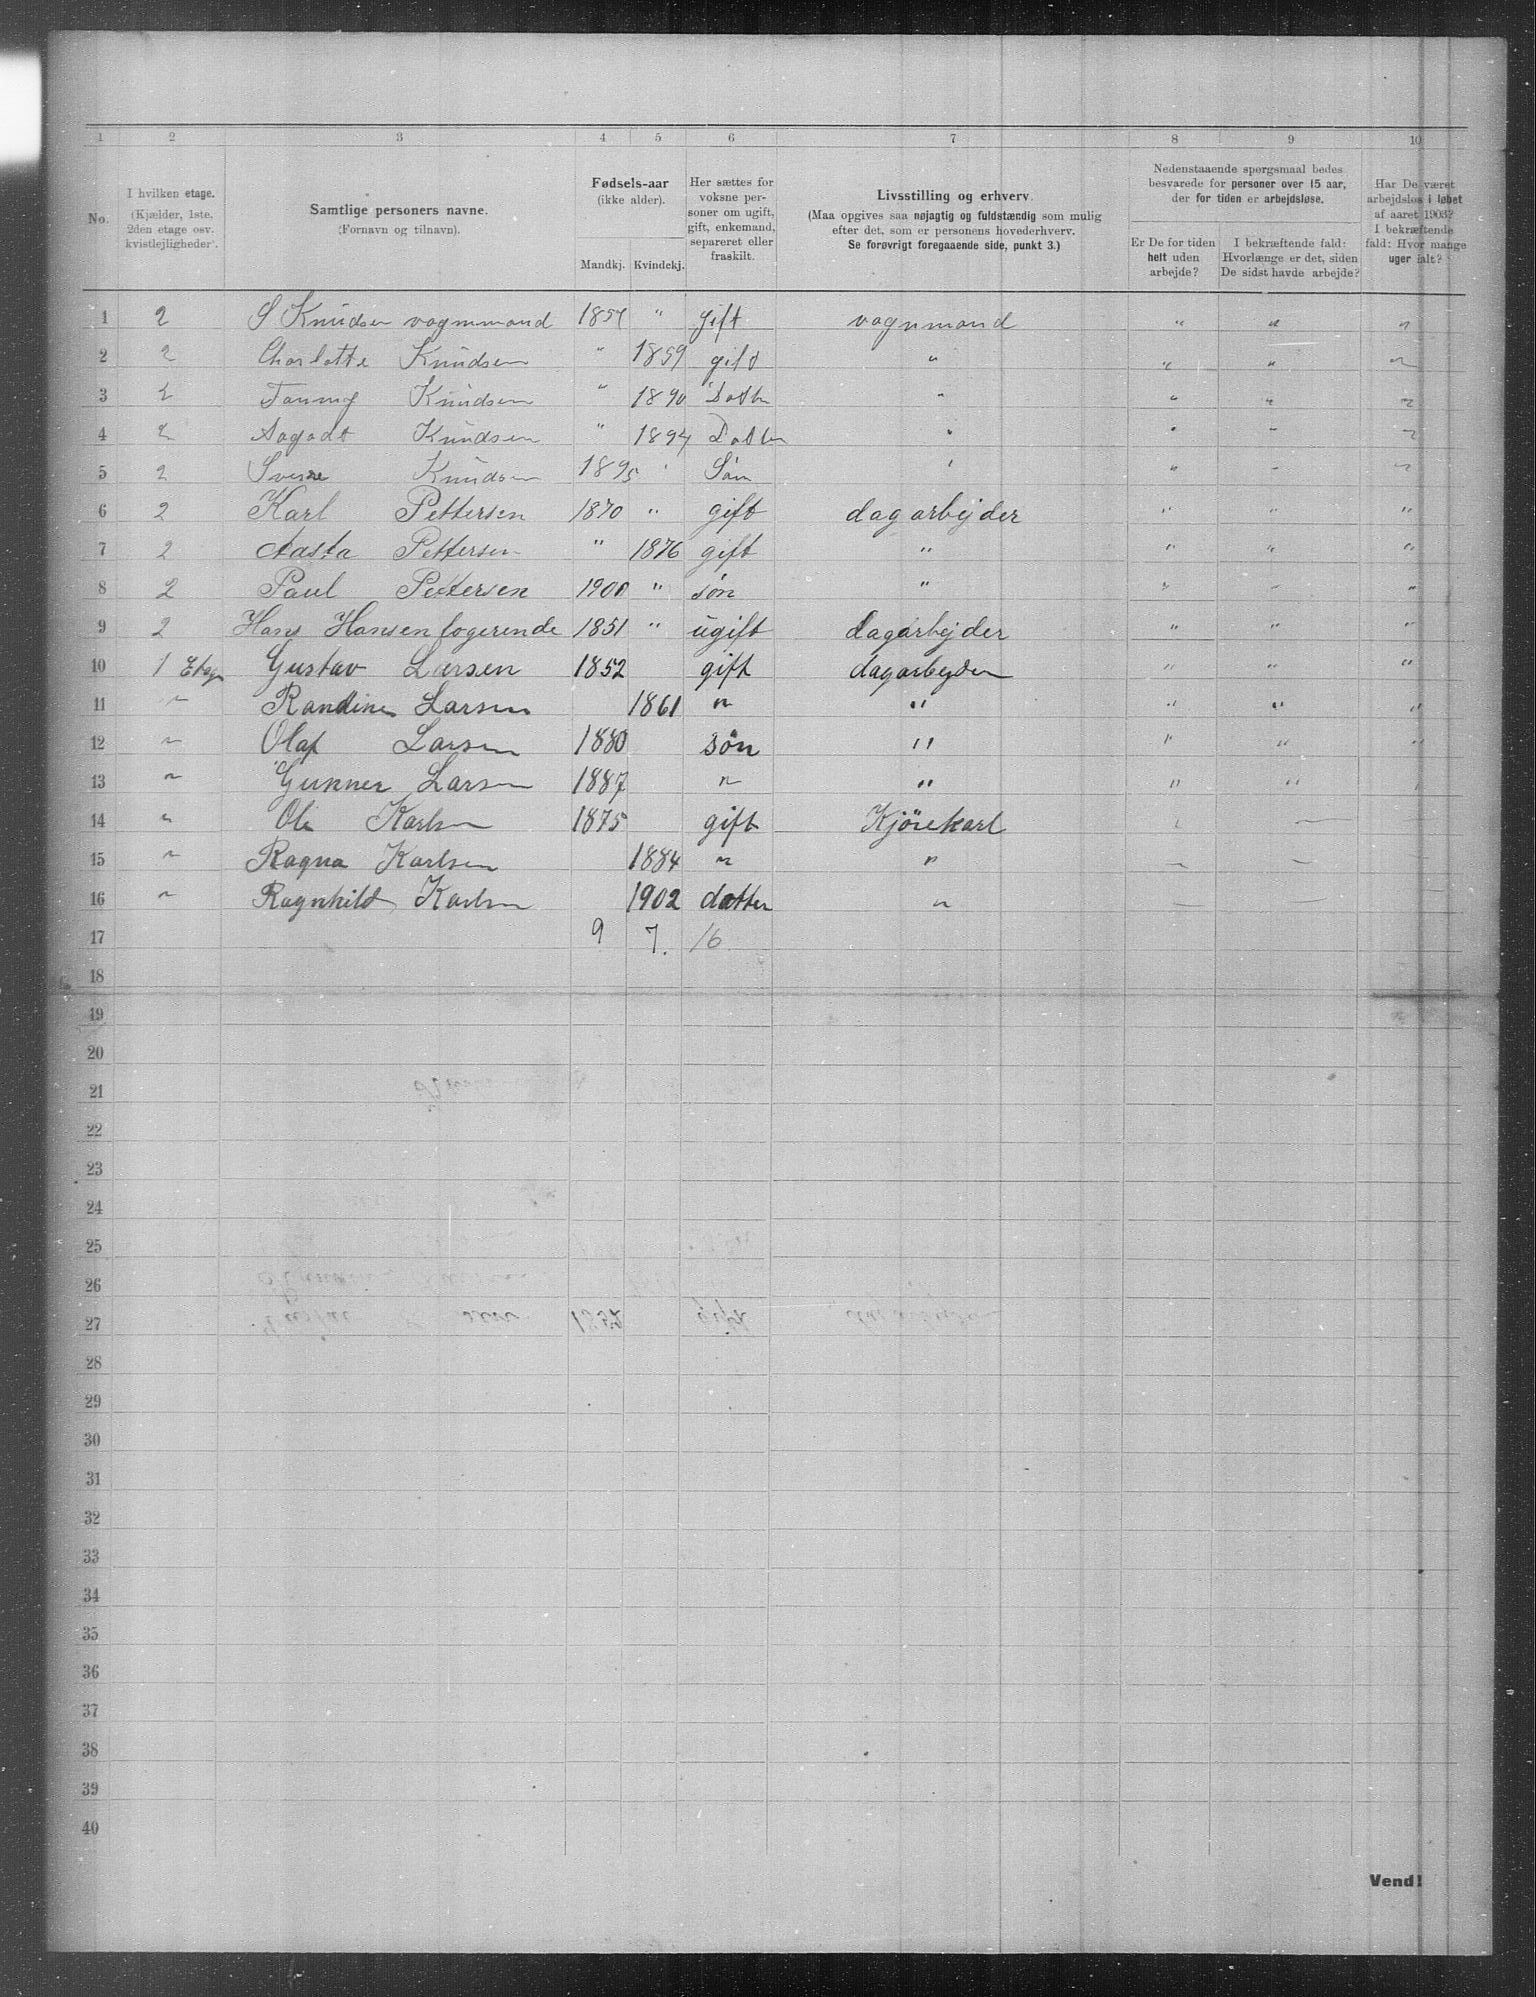 1 2 3 4 5 6 7 8 9 10
No.
I hvilken etage.
(Kjælder, 1ste,
2den etage osv.
kvistlejligheder).
Samtlige personers navne.
(Fornavn og tilnavn).
Fødsels-aar
(ikke alder).
Mandkj. Kvindekj.
Her sættes for
voksne per-
soner om ugift,
gift, enkemand,
separeret eller
fraskilt.
Livsstilling og erhverv.
(Maa opgives saa nøjagtig og fuldstændig som mulig
efter det, som er personens hovederhverv.
Se forøvrigt foregaaende side, punkt 3.)
Nedenstaaende spørgsmaal bedes
besvarede for personer over 15 aar,
der for tiden er arbejdsløse.
Er De for tiden
helt uden
arbejde?
I bekræftende fald:
Hvorlænge er det, siden
De sidst havde arbejde?
Har De været
arbejdsløs i løbet
af aaret 1903?
I bekræftende
fald: Hvor mange
uger ialt?
1 2 S Knudsen vognmand 1857 " gift vognmand " " "
2 2 Charlotte Knudsen " 1859 gift " " " "
3 2 Fanny Knudsen " 1890 Datter " " " "
4 2 Knudsen " 1894 Datter " " " "
5 2 Sverre Knudsen 1895 " Søn " " " "
6 2 Karl Pettersen 1870 " gift dagarbejder " " "
7 2 Aasta Pettersen " 1876 gift " " " "
8 2 Paul Pettersen 1900 " søn " " " "
9 2 Hans Hansen logerende 1851 " ugift dagarbejder " " "
10 1 Etage Gustav Larsen 1852 gift dagarbejder " " "
11 " Randine Larsen 1861 " " " " "
12 " Olaf Larsen 1880 søn " " " "
13 " Gunner Larsen 1887 " " " " "
14 " Ole Karlsen 1875 gift Kjörekarl
15 " Ragna Karlsen 1884 " "
16 " Ragnhild Karlsen 1902 datter "
17 9 7. 16.
18
19
20
21
22
23
24
25
26
27
28
29
30
31
32
33
34
35
36
37
38
39
40
Vend!